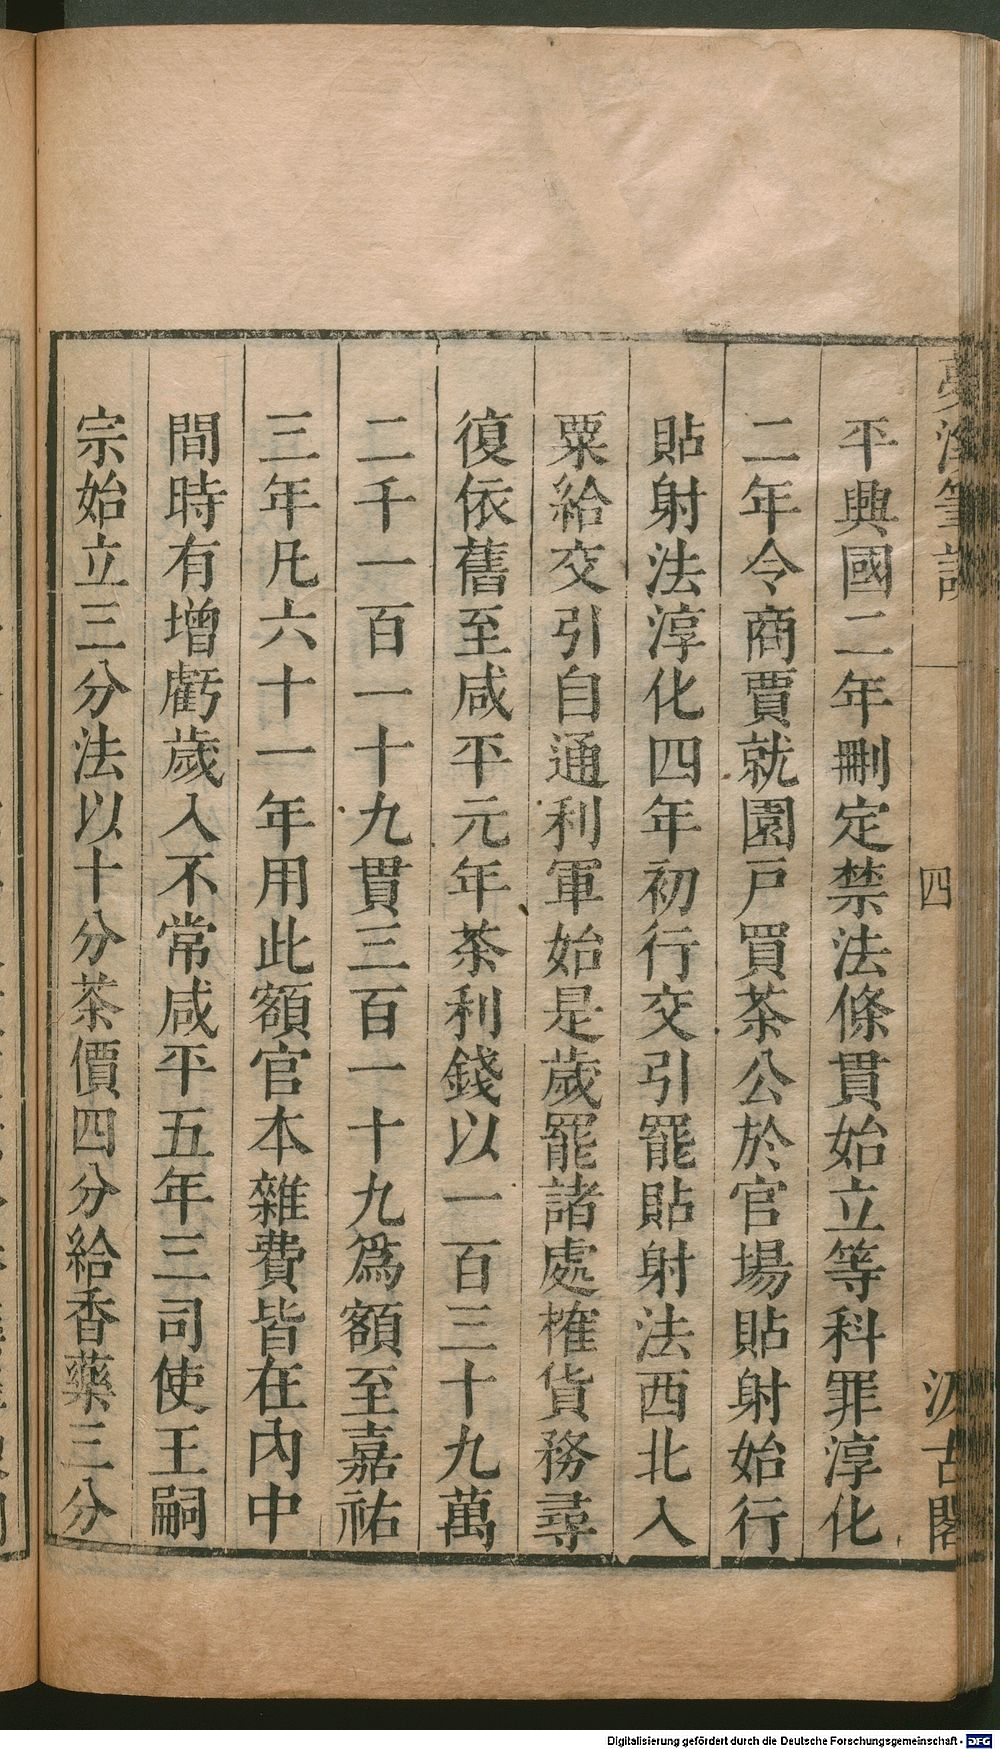 夢溪筆談
四
汲古閣
平興國二年刪定禁法條貫始立等科罪淳化
二年令商賈就園戶買茶公於官場貼射始行
貼射法淳化四年初行交引罷貼射法西北入
粟給交引自通利軍始是歲罷諸處榷貨務尋
復依舊至咸平元年茶利錢以一百三十九萬
二千一百一十九貫三百一十九爲額至嘉祐
三年凡六十一年用此額官本雜費皆在內中
間時有增虧歲入不常咸平五年三司使王嗣
宗始立三分法以十分茶價四分給香藥三分
Digitalisierung gefördert durch die Deutsche Forschungsgemeinschaft - DFG